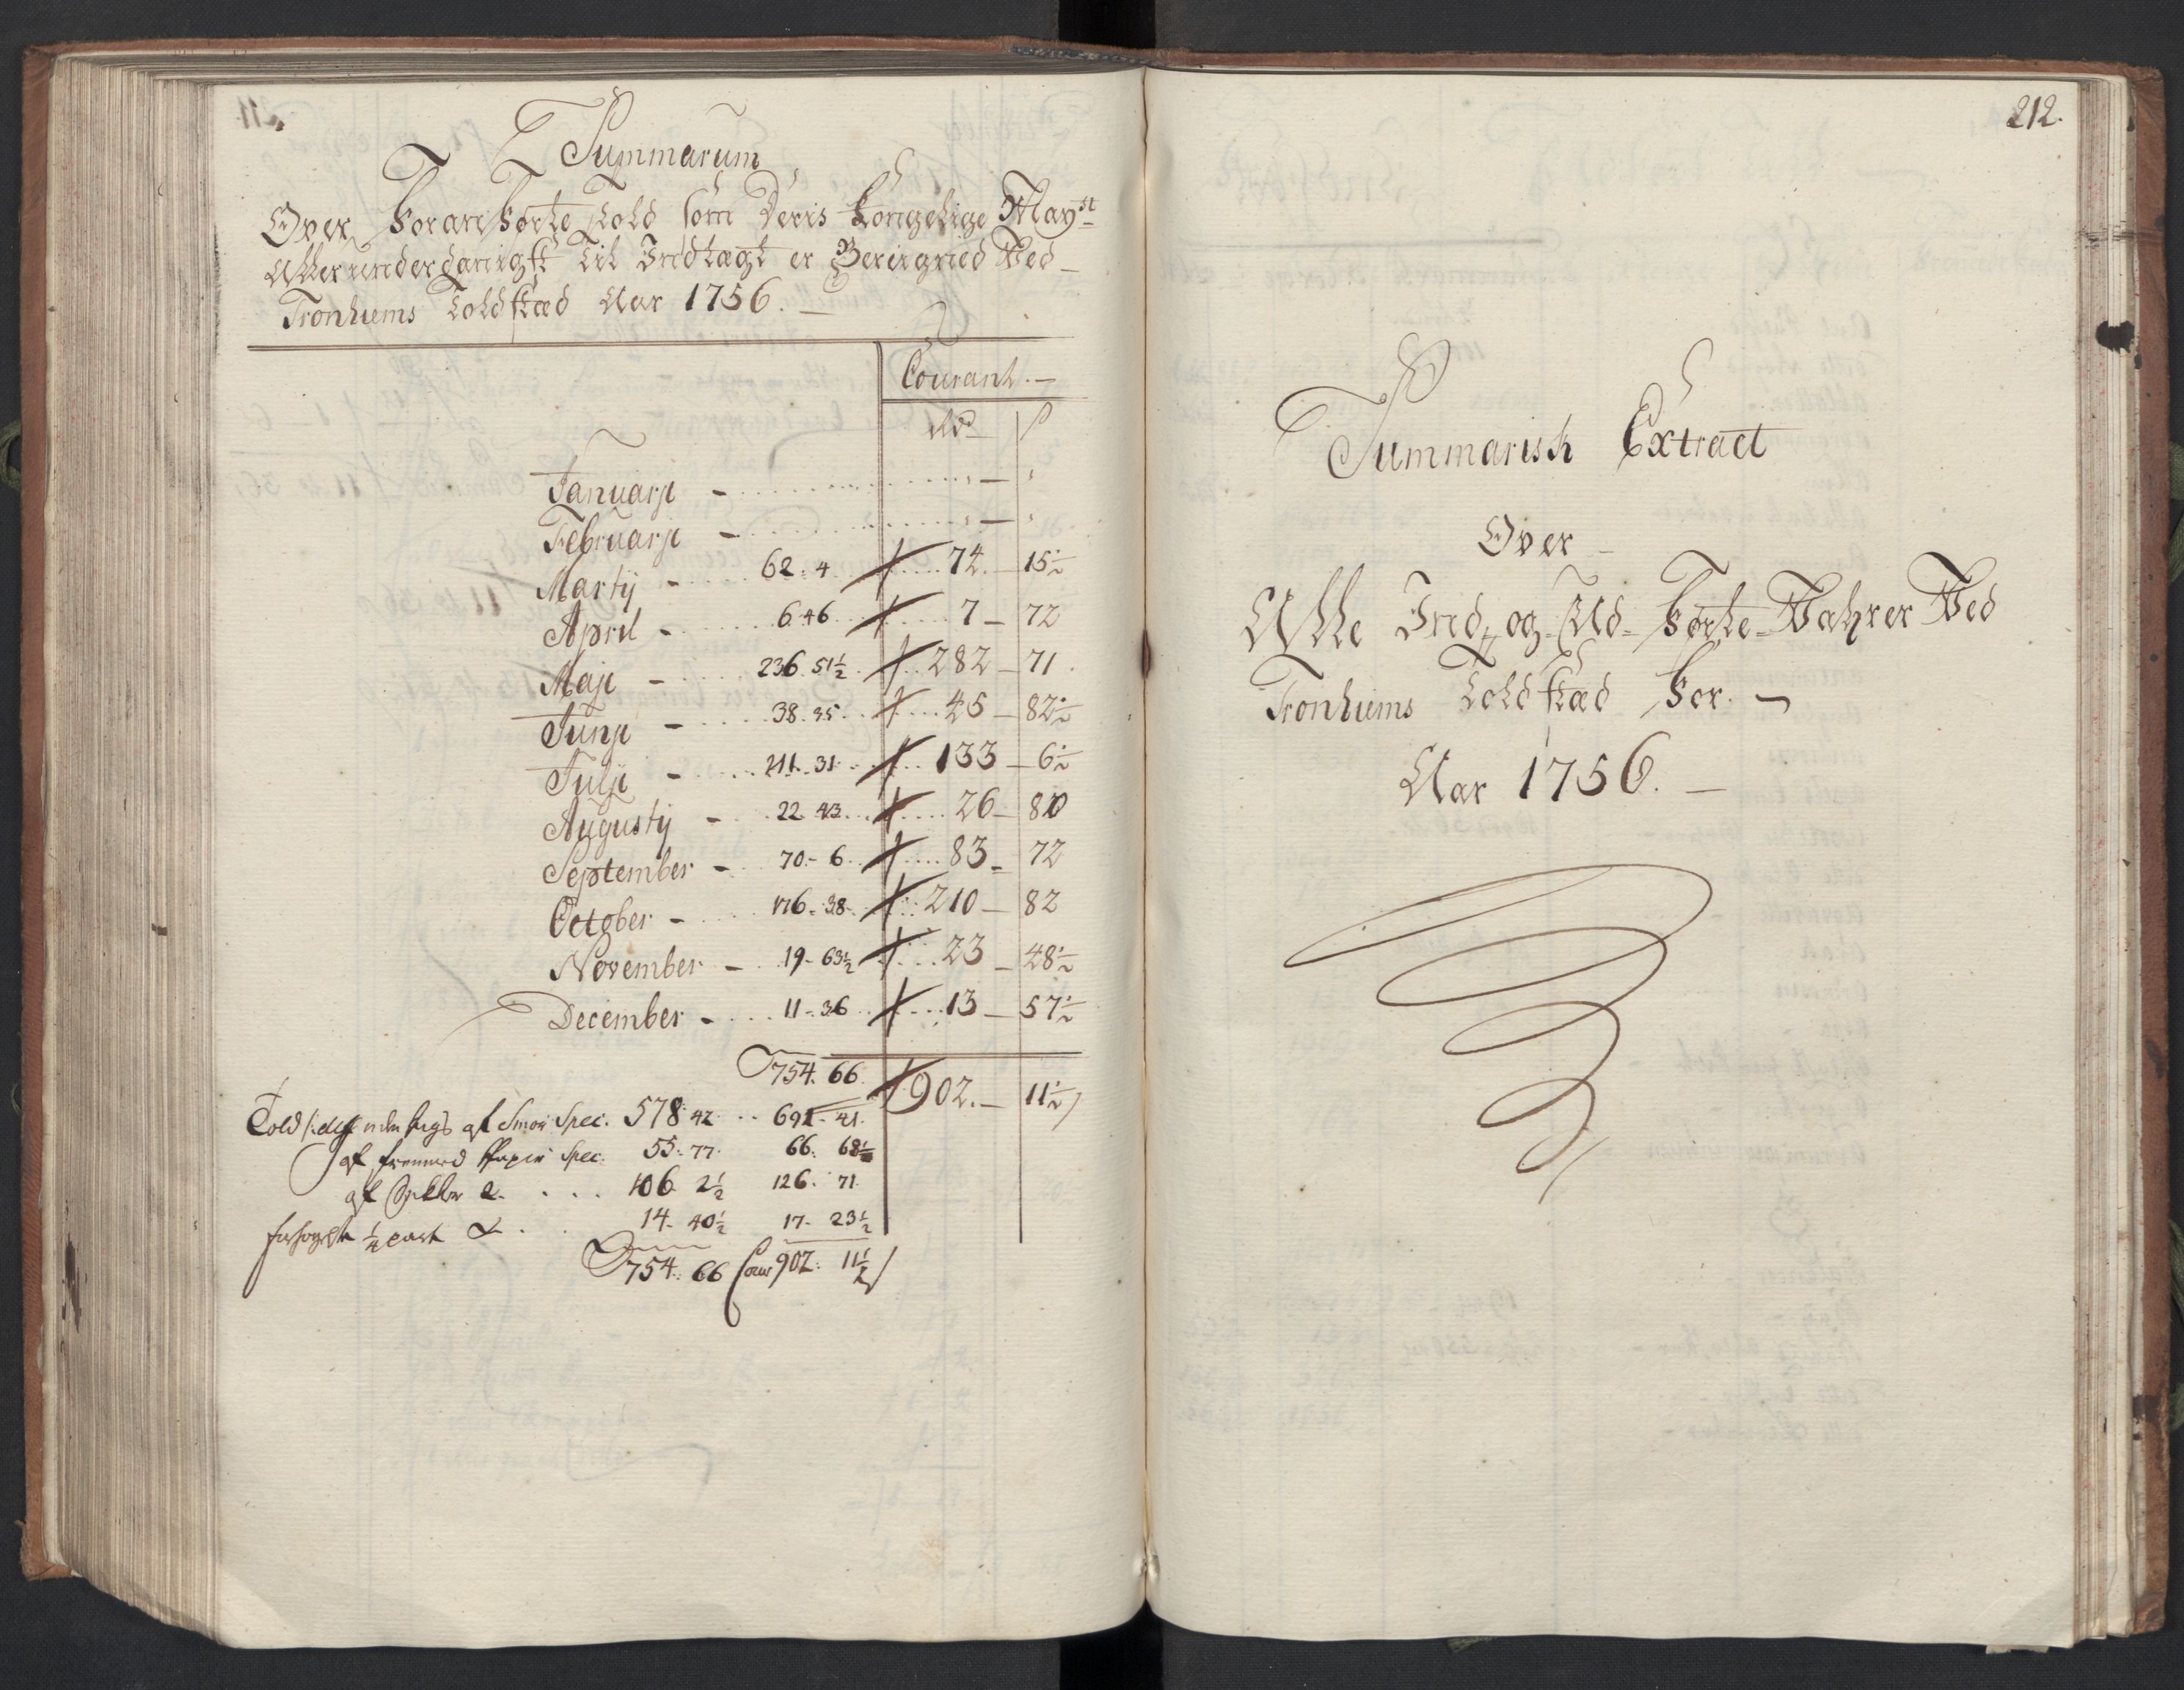 Summarum
Over Foranførte Told som Deris Kongelige May.st
Allerunderdanigst til Indtægt er Beregned Ved
Tronhiems Toldstæd Aar 1756.
Courant.
Rd ß
Januarji - - -
Februarji - - -
Martij - 62. 4. 74. - 15½
April - 6. 46 7 - 72
Maji - 236. 51½ 282 - 71
Junji - 38. 35. 45 - 82½
Julji - 111. 31. 133 - 6½
Augustij - 22. 43. 26 - 80
September - 70. - 6. 83 - 72
October - 176. 38. 210 - 82
November - 19 - 63½ 23 - 48½
December - 11 - 36 13 - 57½
754. 66. 902. - 11½
Told af Smør Spec. 578. 42. 691 - 41.
af fremmed Papir Spec. 55. 77. 66. 68½
af 106 2½ 126. 71.
¼ part 14. 40½ 17. 23½
754. 66 Cour 902. 11½
212.
Summarisk Extract
Over
Alle Ind- og Ud- Førte Vahrer Ved
Tronhiems Toldstæd for
Aar 1756.